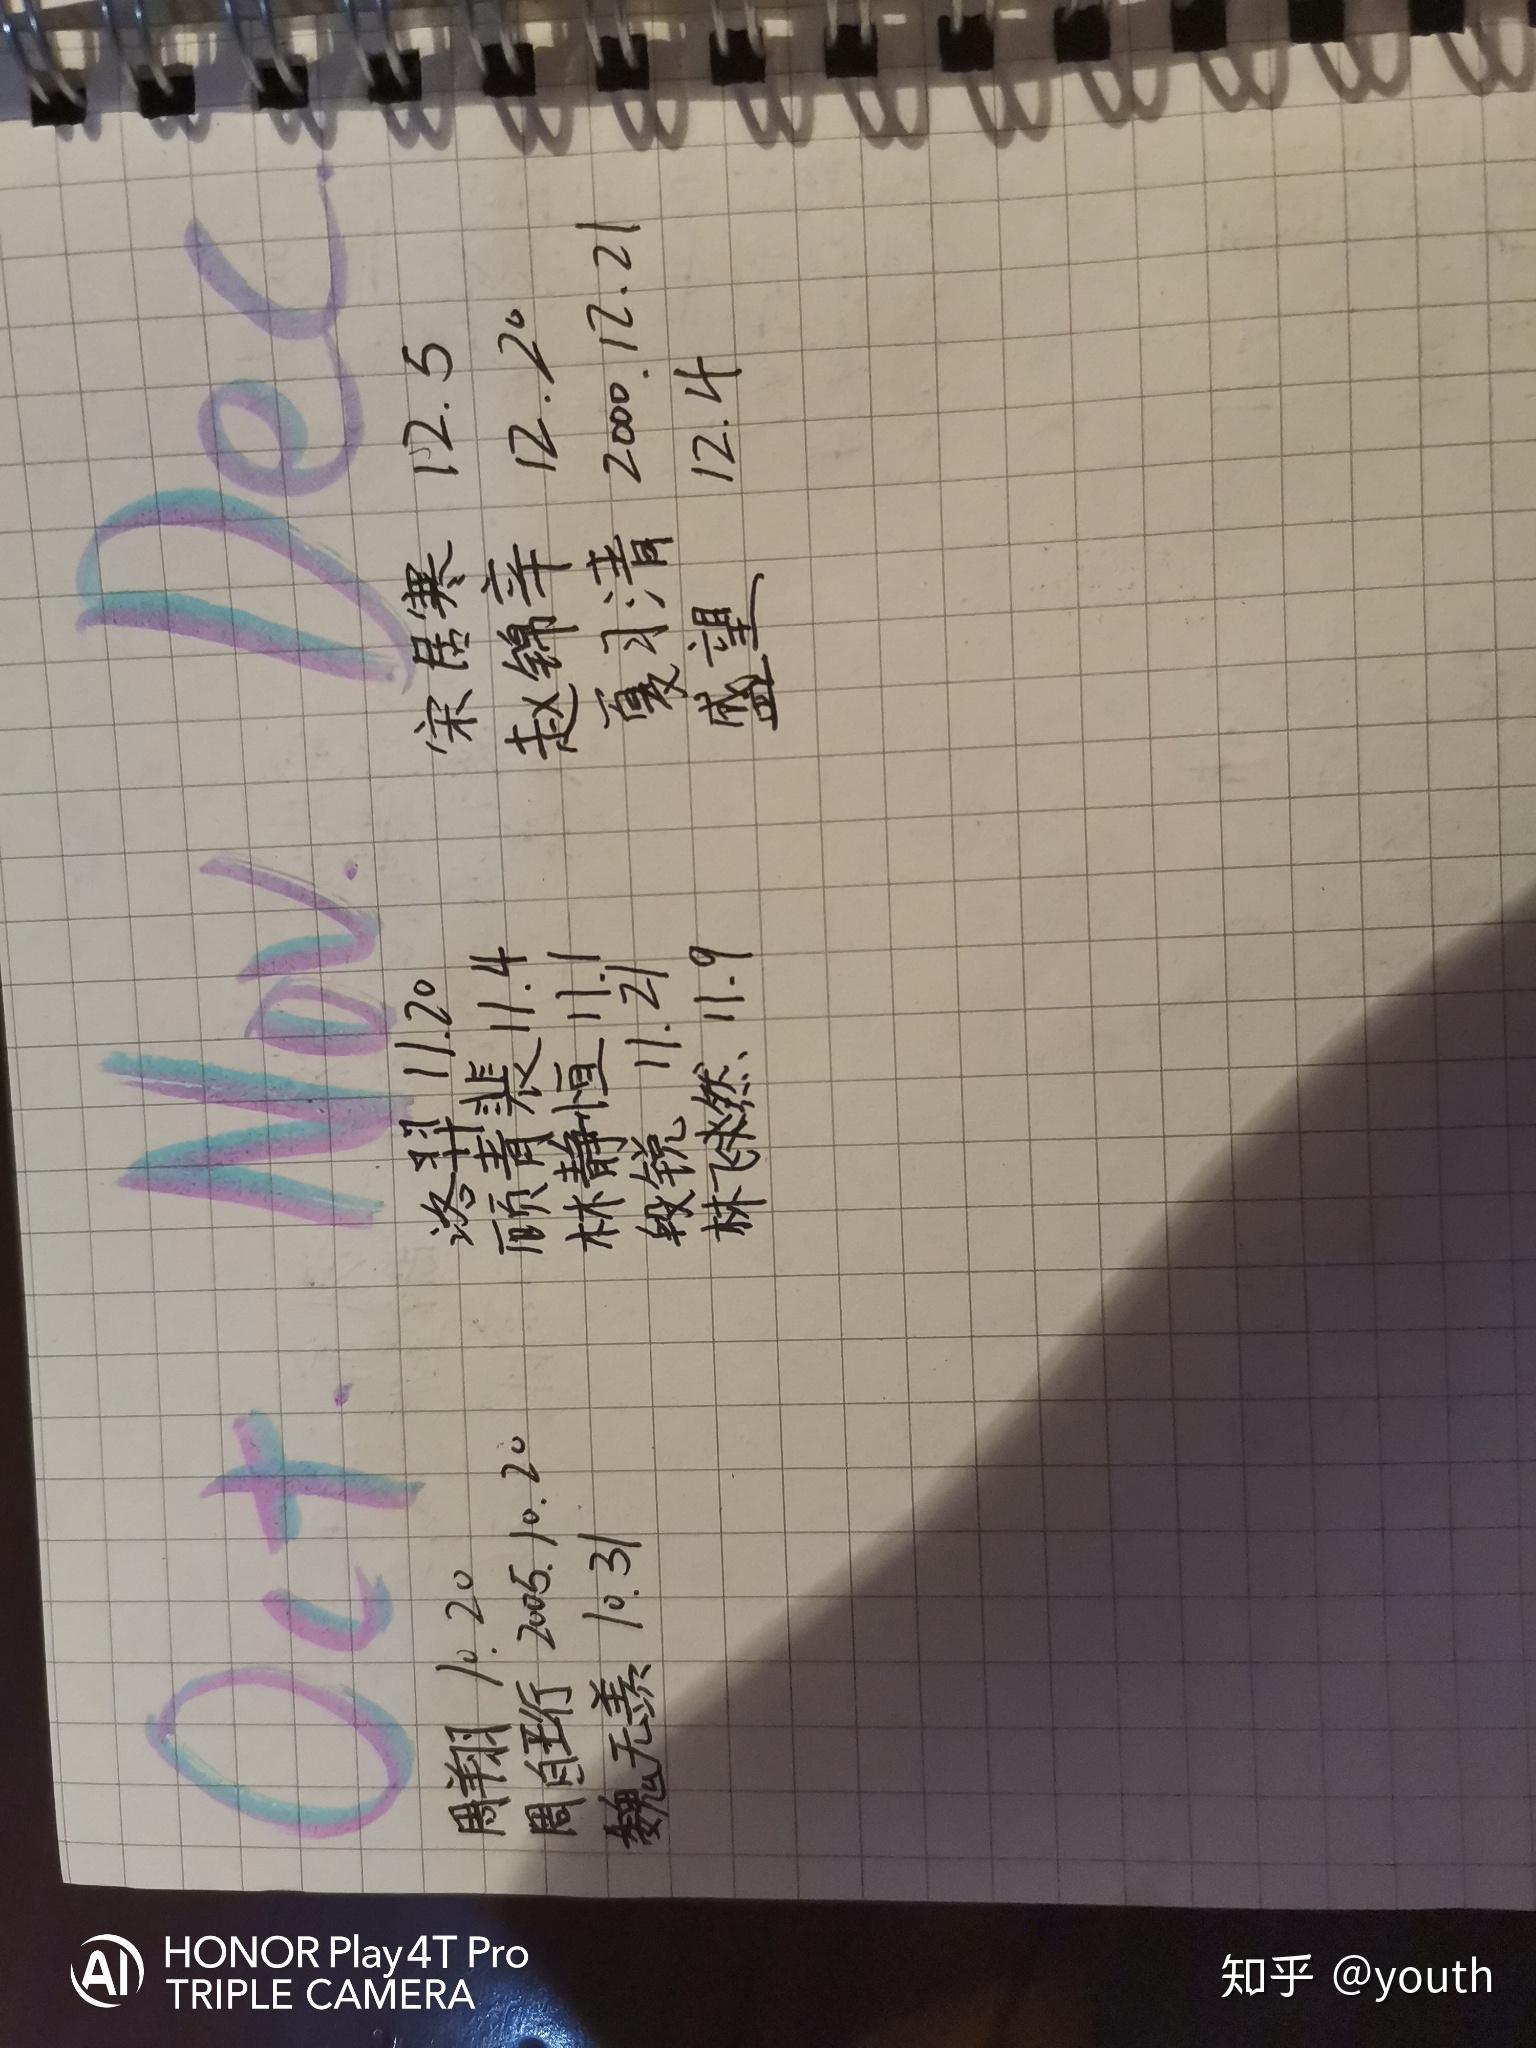 Oct.
周翔 10.20
周自珩 2005.10.20
魏无羡 10.31
Nov.
洛羽 11.20
顾青裴 11.4
林静恒 11.1
段锐 11.21
林飞然 11.9
Dec.
宋居寒 12.5
赵锦辛 12.20
夏习清 2000.12.21
盛望 12.4
HONOR Play4T Pro
TRIPLE CAMERA
知乎 @youth